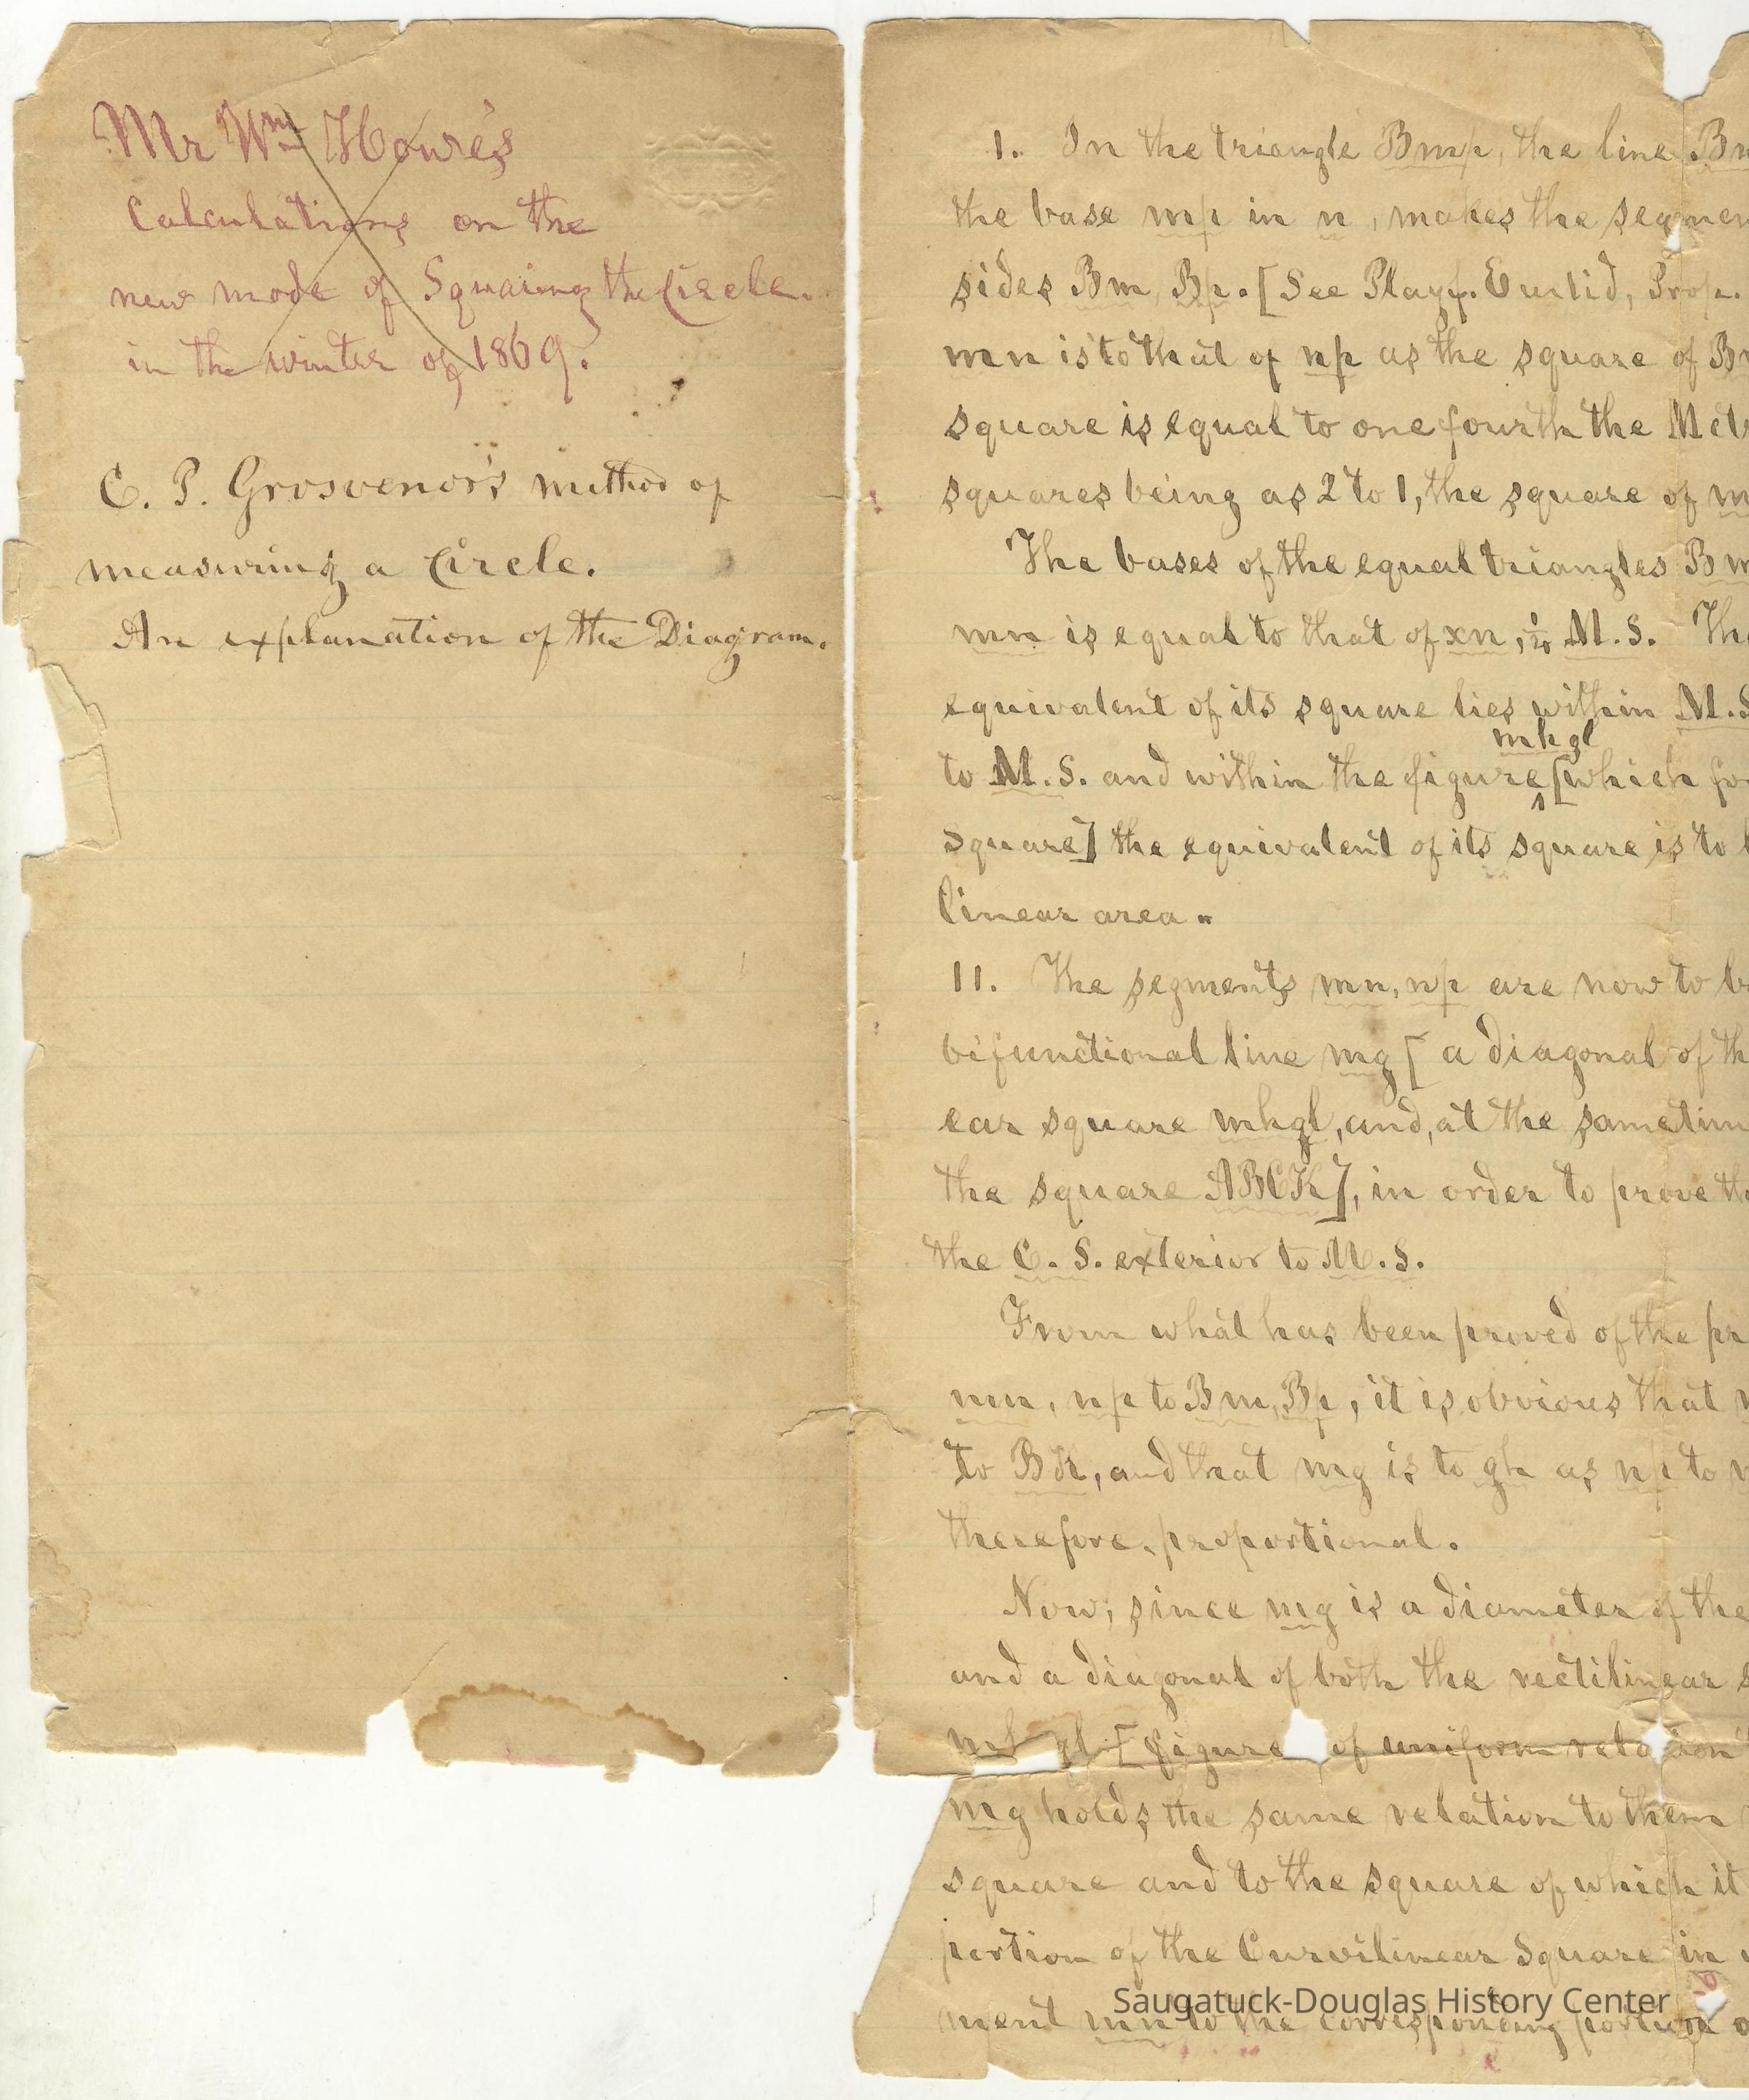 Mr Wm Howe's
Calculations on the
new mode of Squaring the Circle.
in the winter of 1869.
C. P. Grosvenor's method of
measuring a Circle.
An explanation of the Diagram.
1. In the triangle Bmp, the line Bn
the base mp in n, makes the segmen
sides Bm, Bp. [See Playf. Euclid, Prop.
mn is to that of np as the square of B
square is equal to one fourth the M
squares being as 2 to 1, the square of m
The bases of the equal triangles Bm
mn is equal to that of xn, 1/20 M.S. The
equivalent of its square lies within M.S
mhgl
to M.S. and within the figure [which fo
square] the equivalent of its square is to b
linear area.
11. The segments mn, np are now to b
bifunctional line mg [a diagonal of th
ear square mhgl, and, at the same tim
the square ABCK], in order to prove th
the C. S. exterior to M. S.
From what has been proved of the pr
mn, np to Bm, Bp, it is obvious that
to BK, and that mg is to gh as np to
therefore, proportional.
Now, since mg is a diameter of the
and a diagonal of both the rectilinear s
gl [figure of uniform relation
mg holds the same relation to them
square and to the square of which it
portion of the Curvilinear Square in
ment mn to the corresponding portion o
Saugatuck-Douglas History Center